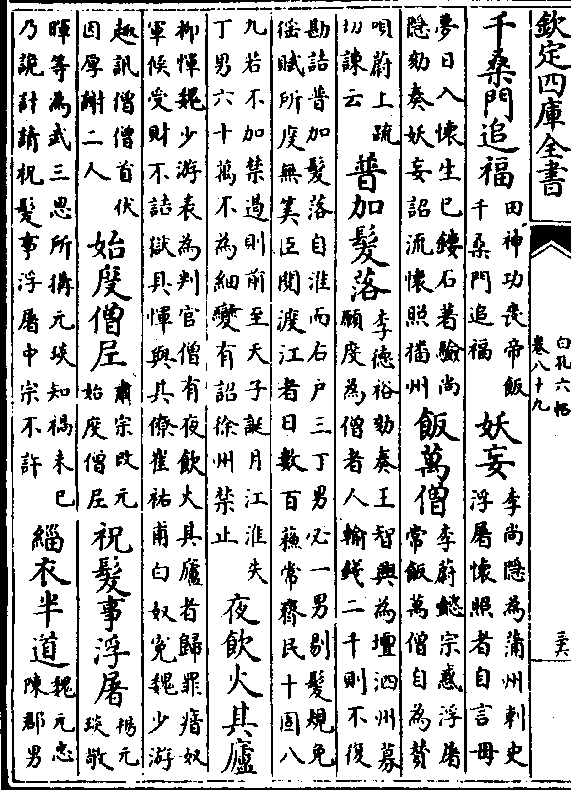 欽定四庫全書
白孔六帖
卷八十九
千桑門追福
田神功喪帝飯
千桑門追福
妖妄
李尚隠為蒲州刺史
浮屠懐照者自言母
夢日入懐生已鏤石著驗尚
隠劾奏妖妄詔流懐照播州
飯萬僧
李蔚懿宗惑浮屠
常飯萬僧自為賛
唄蔚上疏
切諫云
普加髮落
李德裕劾奏王智興為壇泗州募
願度為僧者人輸錢二千則不復
勘詰普加髮落自淮而右户三丁男必一男剔髮規免
徭賦所度無筭臣閲渡江者日數百蘇常齊民十固八
九若不加禁遏則前至天子誕月江淮失
丁男六十萬不為細變有詔徐州禁止
夜飲火其廬
柳惲魏少游表為判官僧有夜飲火其廬者歸罪瘖奴
軍候受財不詰獄具惲與其僚崔祐甫白奴寃魏少游
趣訊僧僧首伏
因厚謝二人
始度僧尼
肅宗改元
始度僧尼
祝髮事浮屠
楊元
琰敬
暉等為武三思所搆元琰知禍未已
乃説計請祝髮事浮屠中宗不許
緇衣半道
魏元忠
陳郡男